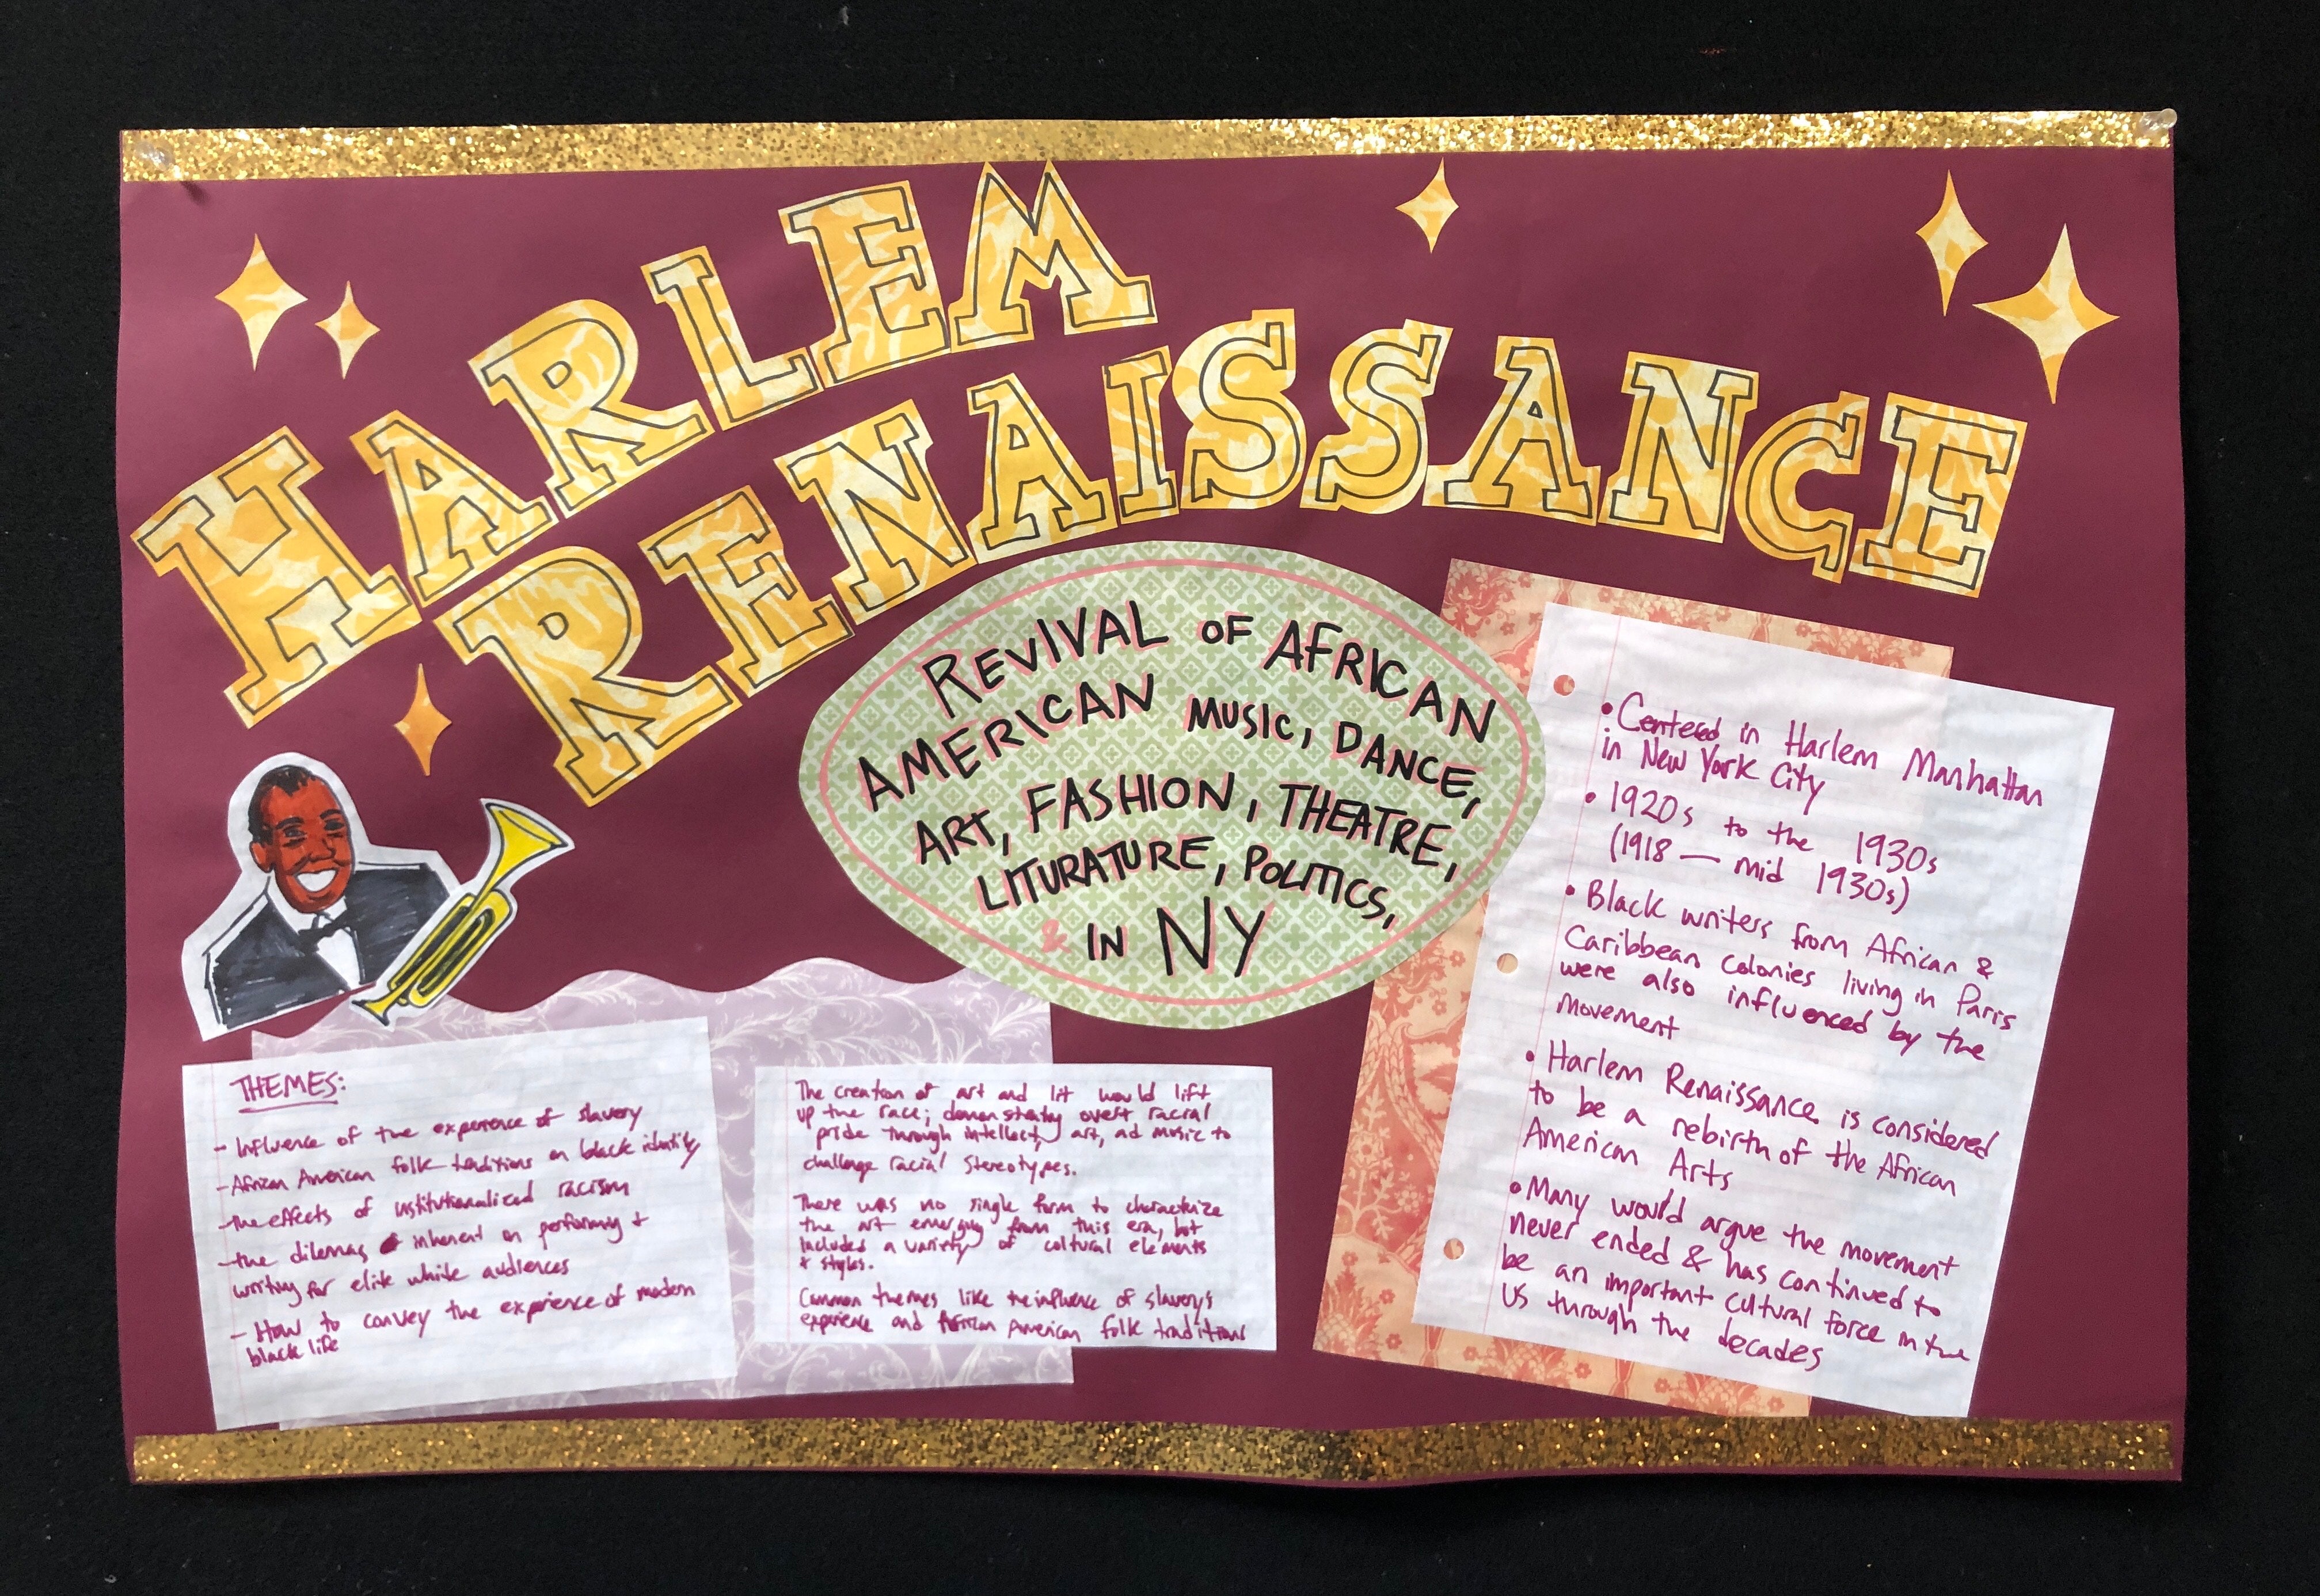 HARLEM
RENAISSANCE
REVIVAL OF AFRICAN
AMERICAN MUSIC, DANCE,
ART, FASHION, THEATRE,
LITURATURE, POLITICS,
& IN NY
• Centered in Harlem Manhattan
in New York City
• 1920s to the 1930s
(1918 — mid 1930s)
• Black writers from African &
Caribbean colonies living in Paris
were also influenced by the
movement
• Harlem Renaissance is considered
to be a rebirth of the African
American Arts
• Many would argue the movement
never ended & has continued to
be an important cultural force in the
US through the decades
THEMES:
- Influence of the experience of slavery
- African American folk traditions on black identity
- the effects of institutionalized racism
- the dilemas inherent on performing +
writing for elite white audiences
- How to convey the experience of modern
black life
The creation of art and lit would lift
up the race; demonstrating overt racial
pride through intellect, art, ad music to
challenge racial stereotypes.
There was no single form to characterize
the art emerging from this era, but
included a variety of cultural elements
+ styles.
Common themes like the influence of slavery's
experience and African American folk traditions